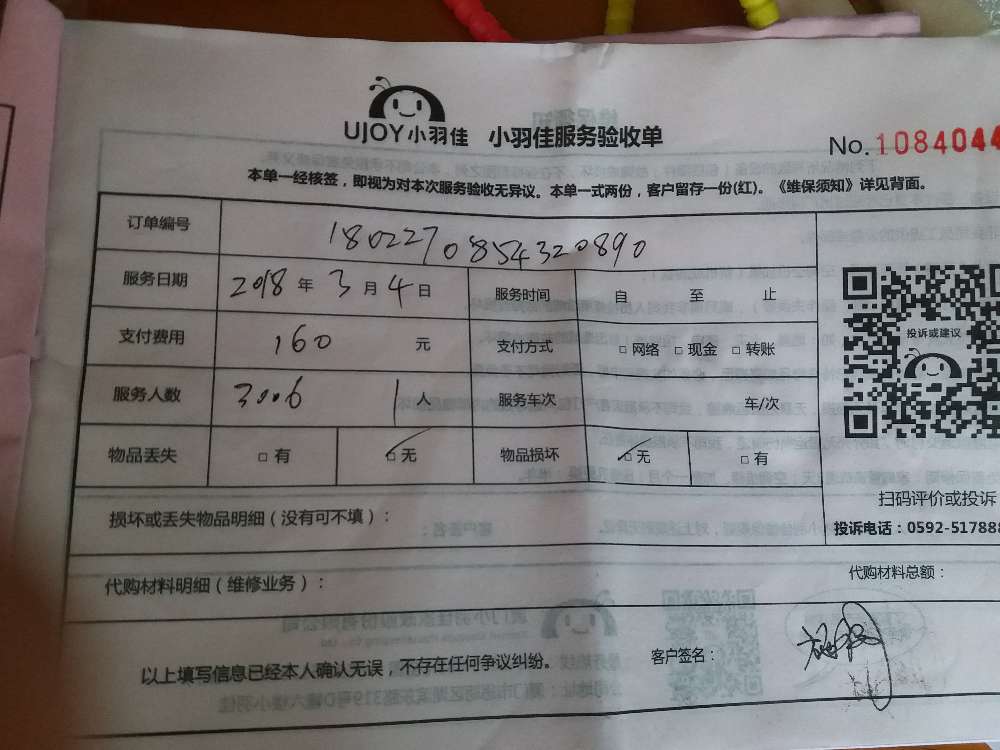 UJOY小羽佳 小羽佳服务验收单
No.1084044
本单一经核签，即视为对本次服务验收无异议。本单一式两份，客户留存一份(红)。《维保须知》详见背面。
订单编号 1802270854320890
服务日期 2018 年 3 月 4 日 服务时间 自 至 止
支付费用 160 元 支付方式 □ 网络 □ 现金 □ 转账
投诉或建议
服务人数 3006 1 人 服务车次 车/次
物品丢失 □ 有 □ 无 物品损坏 □ 无 □ 有
扫码评价或投诉
损坏或丢失物品明细（没有可不填）：
投诉电话：0592-517888
代购材料明细（维修业务）：
代购材料总额：
以上填写信息已经本人确认无误，不存在任何争议纠纷。 客户签名：